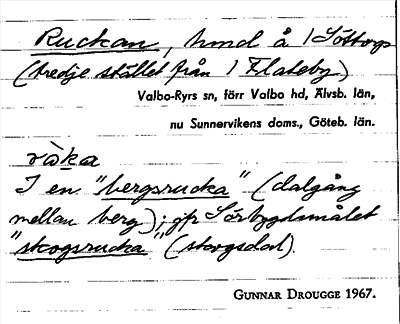 Ruckan, hmd å 1 Söttorp
(tredje stället från 1 Flateby)
Valbo-Ryrs sn, förr Valbo hd, Älvsb. län,
nu Sunnervikens doms., Göteb. län.
ràka
I en "bergsrucka" (dalgång
mellan berg); jfr Sörbygdsmålet
"skogsrucka" (skogsdal).
GUNNAR DROUGGE 1967.